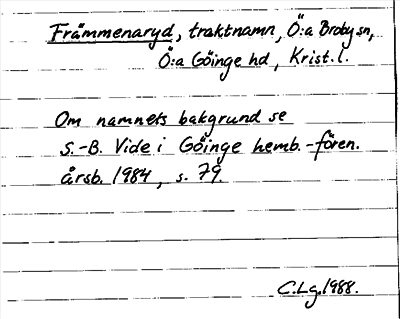 Främmenaryd, traktnamn, Ö:a Broby sn,
Ö:a Göinge hd, Krist. l.
Om namnets bakgrund se
S.-B. Vide i Göinge hemb.-fören.
årsb. 1984, s. 79.
C.Lg.1988.